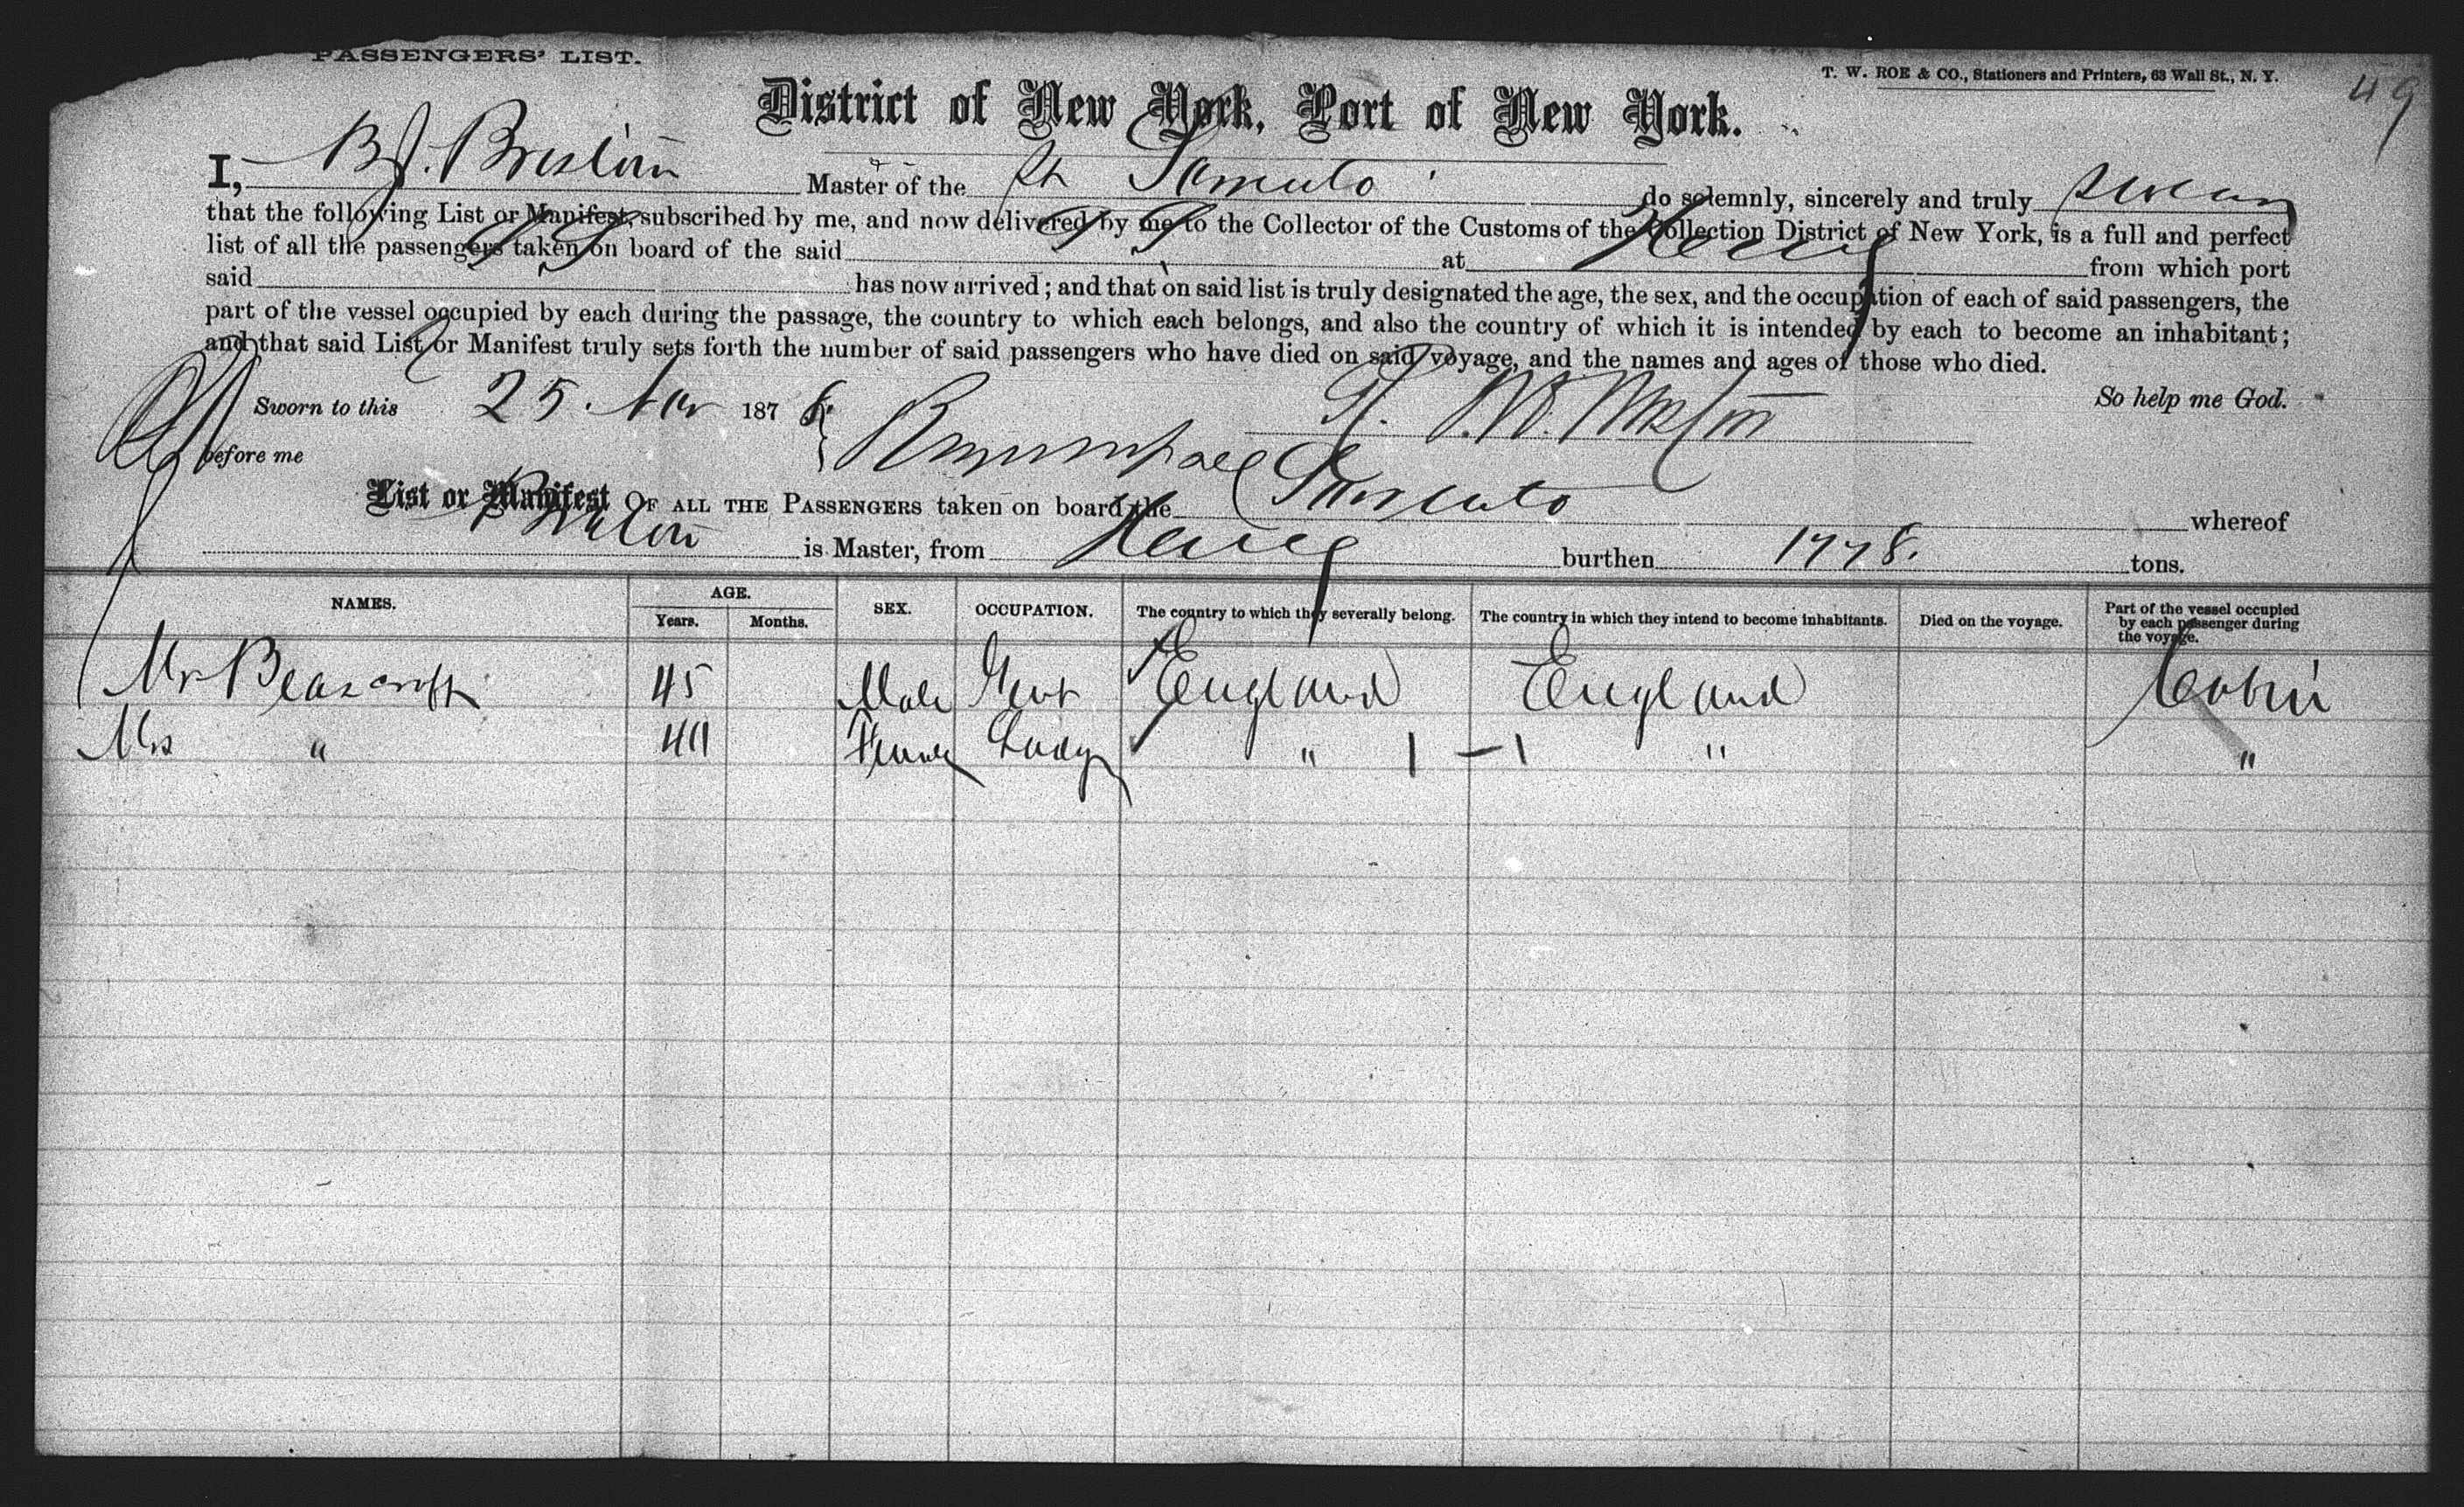 PASSENGERS' LIST.
T. W. ROE & CO., Stationers and Printers, 63 Wall St., N. Y.
49
District of New York, Port of New York.
I, Master of the do solemnly, sincerely and truly swear
that the following List or Manifest, subscribed by me, and now delivered by me to the Collector of the Customs of the Collection District of New York, is a full and perfect
list of all the passengers taken on board of the said at from which port
said has now arrived; and that on said list is truly designated the age, the sex, and the occupation of each of said passengers, the
part of the vessel occupied by each during the passage, the country to which each belongs, and also the country of which it is intended by each to become an inhabitant;
and that said List or Manifest truly sets forth the number of said passengers who have died on said voyage, and the names and ages of those who died.
So help me God.
Sworn to this 25 Nov 187
before me
List or Manifest OF ALL THE PASSENGERS taken on board the whereof
is Master, from burthen 1778. tons.
NAMES. AGE. Years. Months. SEX. OCCUPATION. The country to which they severally belong. The country in which they intend to become inhabitants. Died on the voyage. Part of the vessel occupied by each passenger during the voyage.
Mr Beazcroft 45 Male Gent England England Cabin
Mrs " 40 Female Lady " 1 - 1 " "